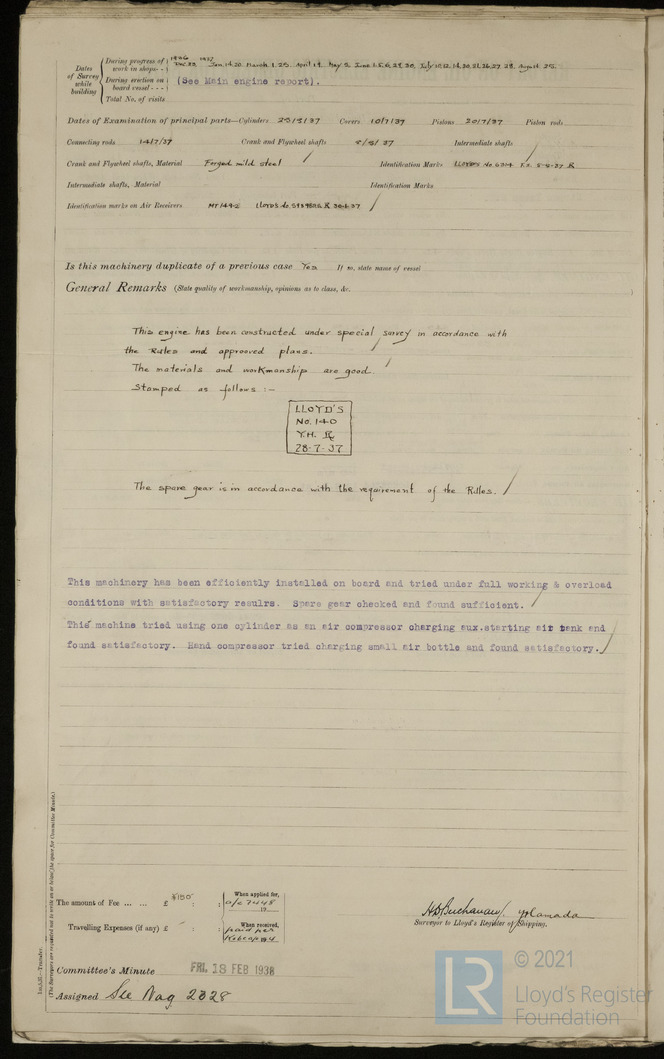 Dates of Survey while building
During progress of work in shops - - 1936 Dec. 22, 1937 Jan. 14. 20. March 1. 25. April 19. May 2. June 1. 5. 6. 28. 30. July 10. 12. 14. 20. 21. 26. 27. 28. August 25.
During erection on board vessel - - - (See Main engine report).
Total No. of visits
Dates of Examination of principal parts—Cylinders Covers 10/7/37 Pistons 20/7/37 Piston rods
Connecting rods 14/7/37 Crank and Flywheel shafts Intermediate shafts
Crank and Flywheel shafts, Material Forged mild steel Identification Marks LLOYDS No. 6214
Intermediate shafts, Material Identification Marks
Identification marks on Air Receivers LLOYDS No.
Is this machinery duplicate of a previous case Yes If so, state name of vessel
General Remarks (State quality of workmanship, opinions as to class, &c.
This engine has been constructed under special survey in accordance with
the Rules and approoved plans.
The materials and workmanship are good.
Stamped as follows :—
LLOYD'S
No. 140
Y.H. LR
28-7-37
The spare gear is in accordance with the requirement of the Rules.
This machinery has been efficiently installed on board and tried under full working & overload
conditions with satisfactory resulrs. Spare gear checked and found sufficient.
This machine tried using one cylinder as an air compressor charging aux.starting air tank and
found satisfactory. Hand compressor tried charging small air bottle and found satisfactory.
The amount of Fee ... ... £ ¥150 : : When applied for, a/c 7448 19
Travelling Expenses (if any) £ : : When received,
Committee's Minute FRI. 18 FEB 1938
Assigned See Nag 2328
H.D. Buchanan / Y. Yamada
Surveyor to Lloyd's Register of Shipping.
(The Surveyors are requested not to write on or below the space for Committee Minute.)
© 2021
LR
Lloyd's Register
Foundation